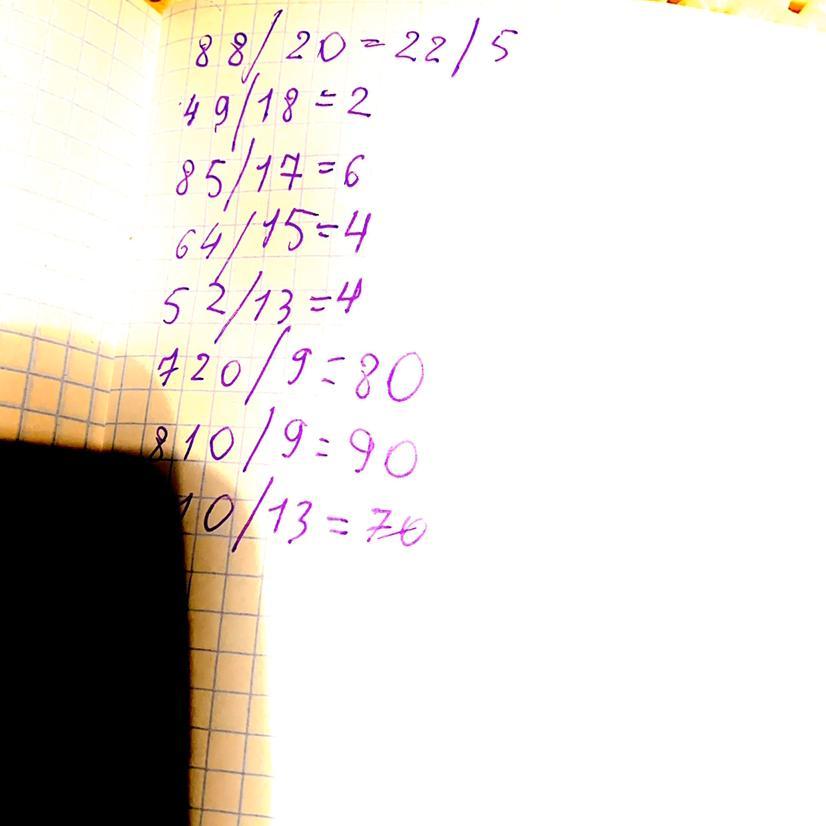 88/20=22/5
49/18=2
85/17=6
64/15=4
52/13=4
720/9=80
810/9=90
10/13=70